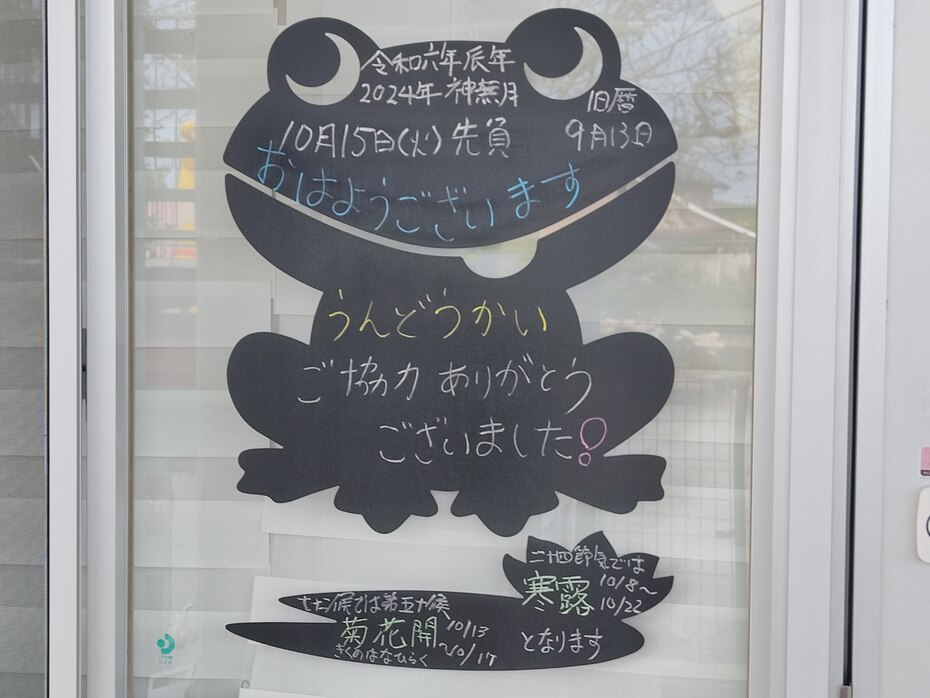 令和六年辰年
2024年神無月
旧暦
10月15日(火)先負
9月13日
おはようございます
うんどうかい
ご協力ありがとう
ございました!
二十四節気では
寒露
10/8〜
10/22
七十二候では第五十候
菊花開
10/13
〜10/17
きくのはなひらく
となります